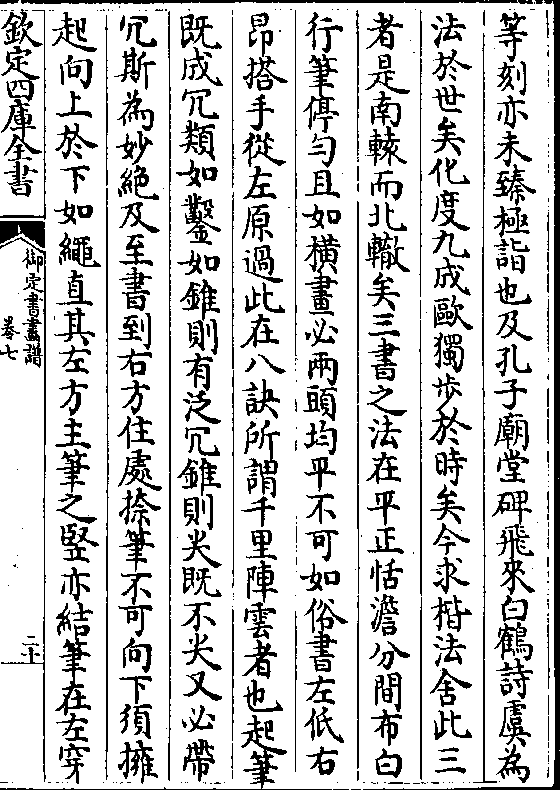 等刻亦未臻極詣也及孔子廟堂碑飛來白鶴詩虞為
法於世矣化度九成歐獨步於時矣今求楷法舍此三
者是南轅而北轍矣三書之法在平正恬澹分間布白
行筆停勻且如橫畫必兩頭均平不可如俗書左低右
昂搭手從左原過此在八訣所謂千里陣雲者也起筆
既成冗類如鑿如錐則有泛冗錐則尖既不尖又必帶
冗斯為妙絶及至書到右方住處捺筆不可向下須擁
起向上於下如繩直其左方主筆之竪亦結筆在左穿
欽定四庫全書
御定書畫譜
卷七
二十